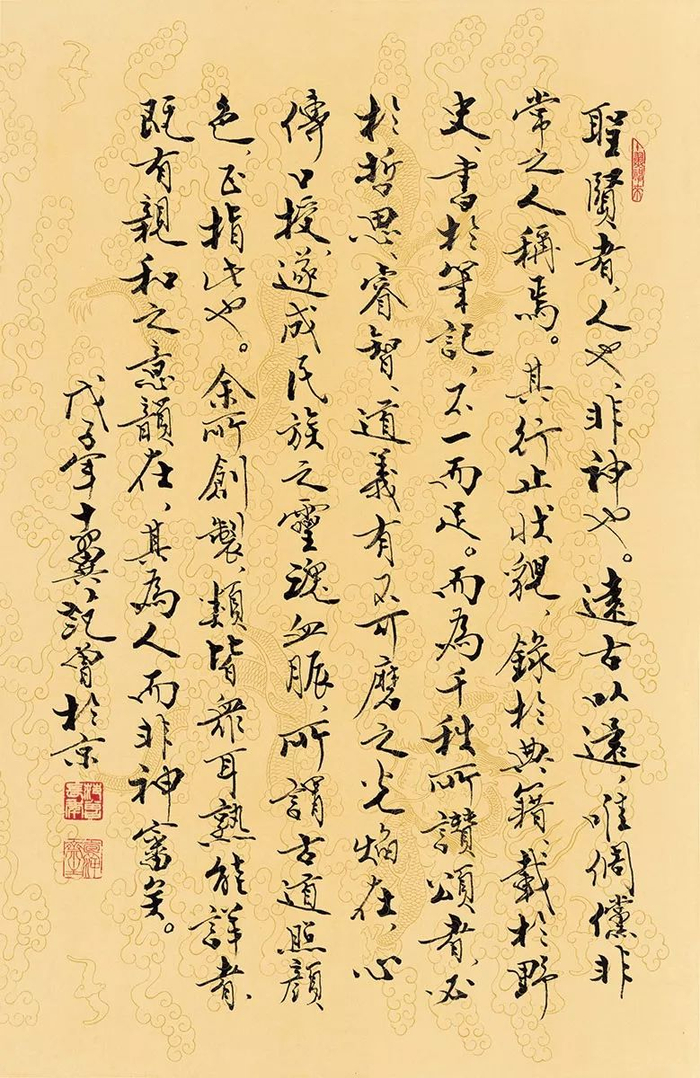 聖賢者、人也、非神也。遠古以還，唯倜儻非
常之人稱焉。其行止狀貌、錄於典籍、載於野
史、書於筆記，不一而足。而為千秋所讚頌者，必
於哲思、睿智、道義有不可磨之光焰在，心
傳口授，遂成民族之靈魂血脈，所謂古道照顏
色，正指此也。余所創製、類皆眾耳熟能詳者、
既有親和之意韻在，其為人而非神審矣。
戊子年十翼記
於京